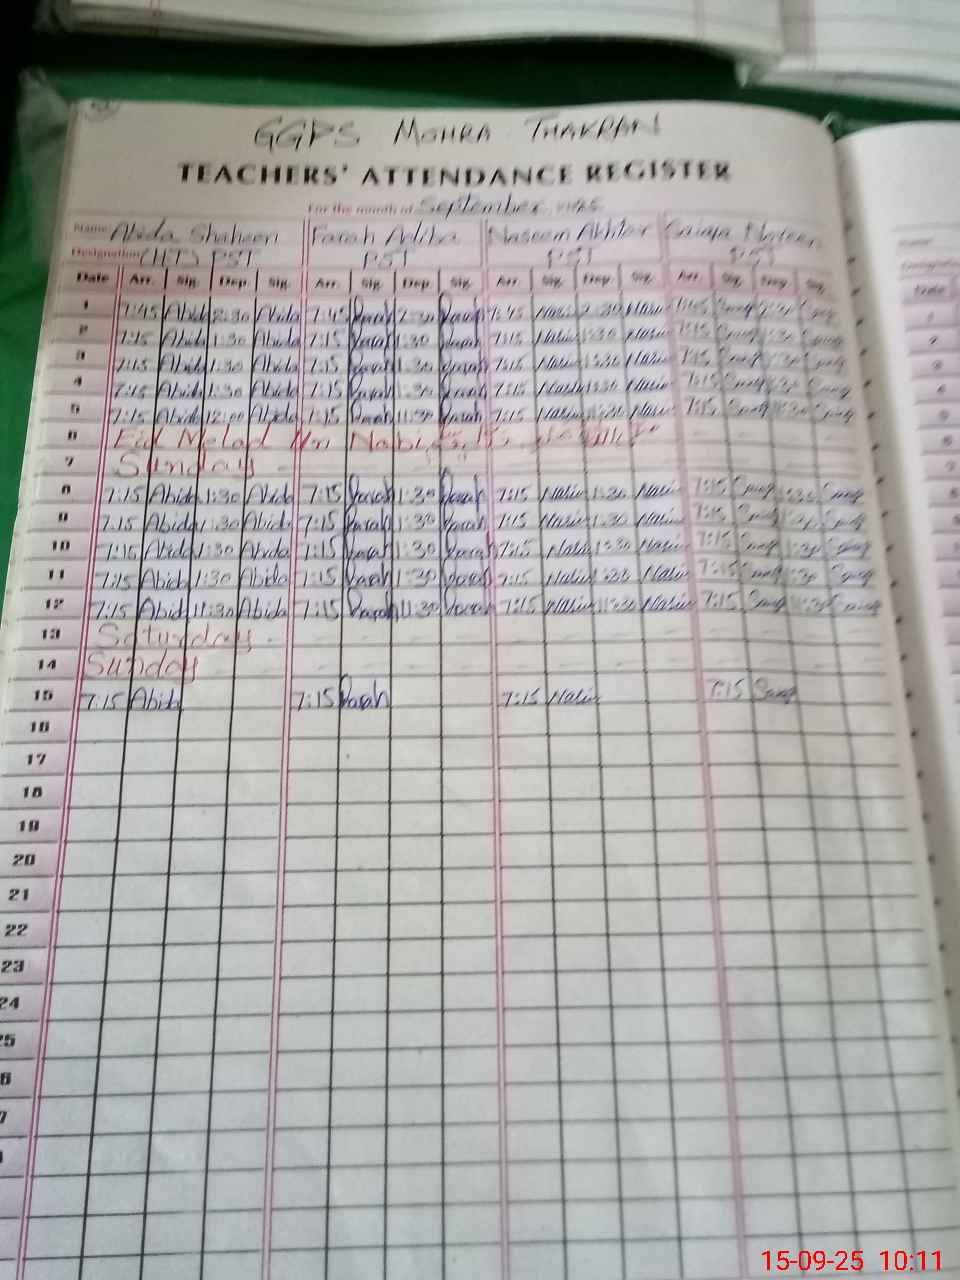 GGPS MOHRA THAKRAN
TEACHERS' ATTENDANCE REGISTER
For the month of September
Name Abida Shaheen Farah Naseem Akhtar
Designation (HT) PST PST PST PST
Date Arr. Sig. Dep. Sig. Arr. Sig. Dep. Sig. Arr. Sig. Dep. Sig. Arr. Sig. Dep. Sig.
1 7:45 Abida 2:30 Abida 7:45 Farah 2:30 Farah 7:45 Nasim 2:30 Nasim 7:45 2:30
2 7:15 Abida 1:30 Abida 7:15 Farah 1:30 Farah 7:15 Nasim 1:30 Nasim 7:15 1:30
3 7:15 Abida 1:30 Abida 7:15 Farah 1:30 Farah 7:15 Nasim 1:30 Nasim 7:15 1:30
4 7:15 Abida 1:30 Abida 7:15 Farah 1:30 Farah 7:15 Nasim 1:30 Nasim 7:15 1:30
5 7:15 Abida 12:00 Abida 7:15 Farah 11:30 Farah 7:15 Nasim 11:30 Nasim 7:15 11:30
6 Eid Melad Un Nabi
7 Sunday
8 7:15 Abida 1:30 Abida 7:15 Farah 1:30 Farah 7:15 Nasim 1:30 Nasim 7:15 1:30
9 7:15 Abida 1:30 Abida 7:15 Farah 1:30 Farah 7:15 Nasim 1:30 Nasim 7:15 1:30
10 7:15 Abida 1:30 Abida 7:15 Farah 1:30 Farah 7:15 Nasim 1:30 Nasim 7:15 1:30
11 7:15 Abida 1:30 Abida 7:15 Farah 1:30 Farah 7:15 Nasim 1:30 Nasim 7:15 1:30
12 7:15 Abida 11:30 Abida 7:15 Farah 11:30 Farah 7:15 Nasim 11:30 Nasim 7:15 11:30
13 Saturday
14 Sunday
15 7:15 Abida 7:15 Farah 7:15 Nasim 7:15
16
17
18
19
20
21
22
23
24
15-09-25 10:11